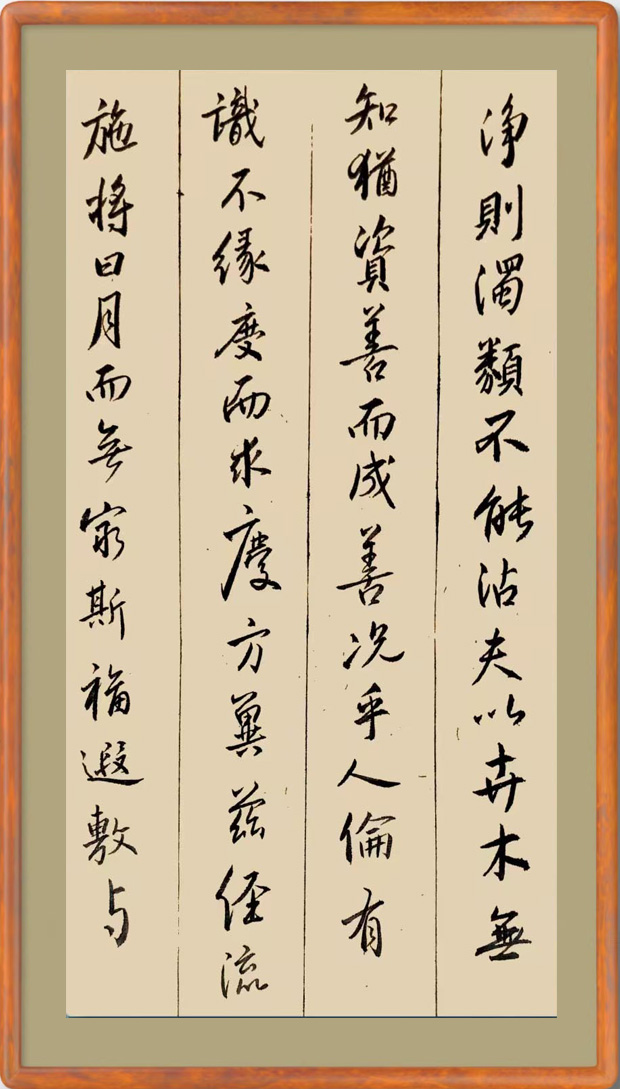 淨則濁類不能沾夫以卉木無
知猶資善而成善況乎人倫有
識不緣慶而求慶方冀茲經流
施將日月而無窮斯福遐敷与